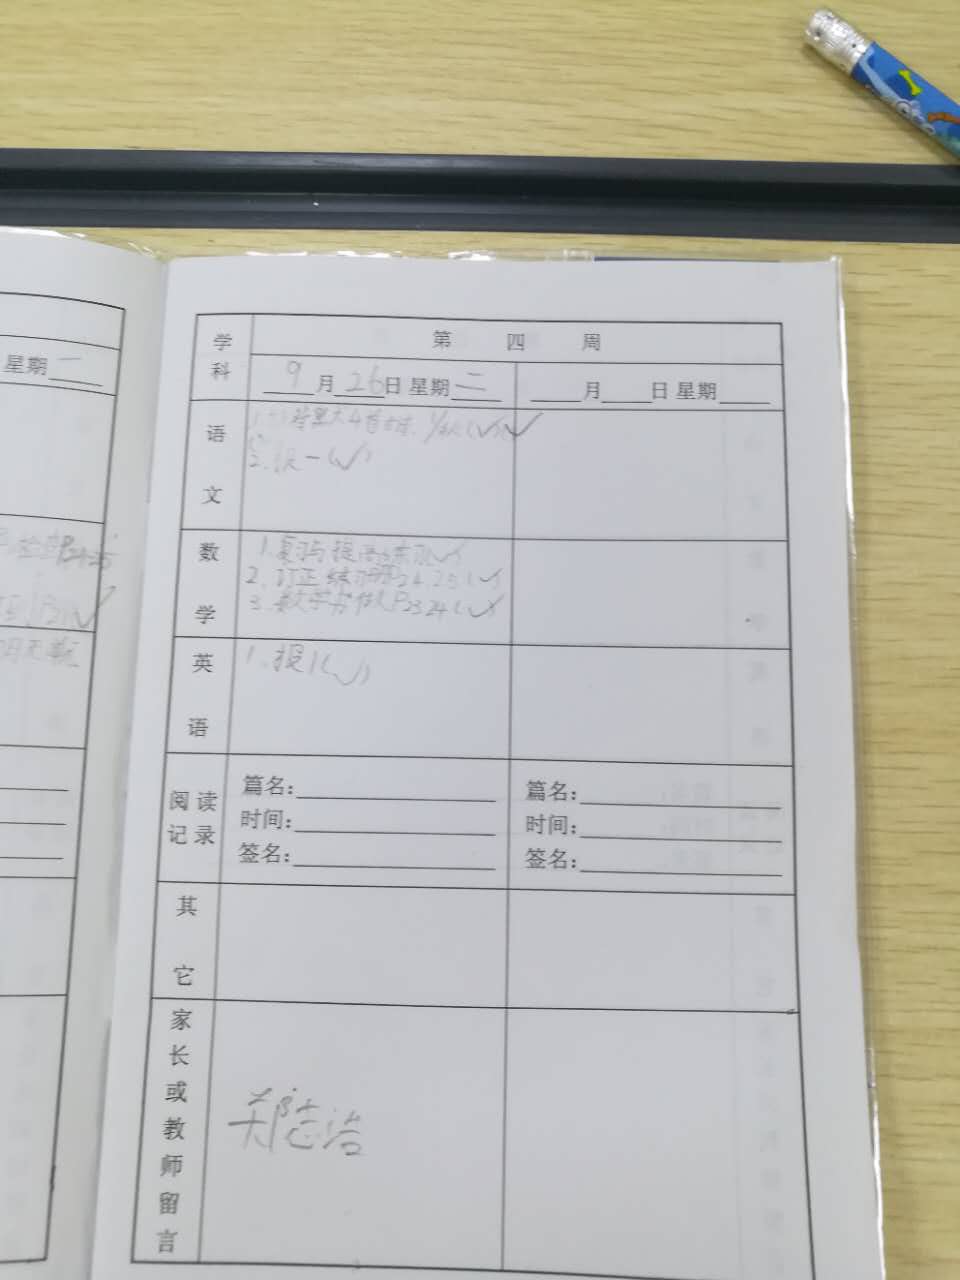 星期二
学科
第 四 周
9月26日 星期二
月 日 星期
语文
2.报一(✓)
数学
1.复习与提高练习(✓)
2.订正练习册P24 25(✓)
3.数学书做P23 24(✓)
英语
1.报1(✓)
阅读记录
篇名:
时间:
签名:
篇名:
时间:
签名:
其它
家长或教师留言
郑志浩